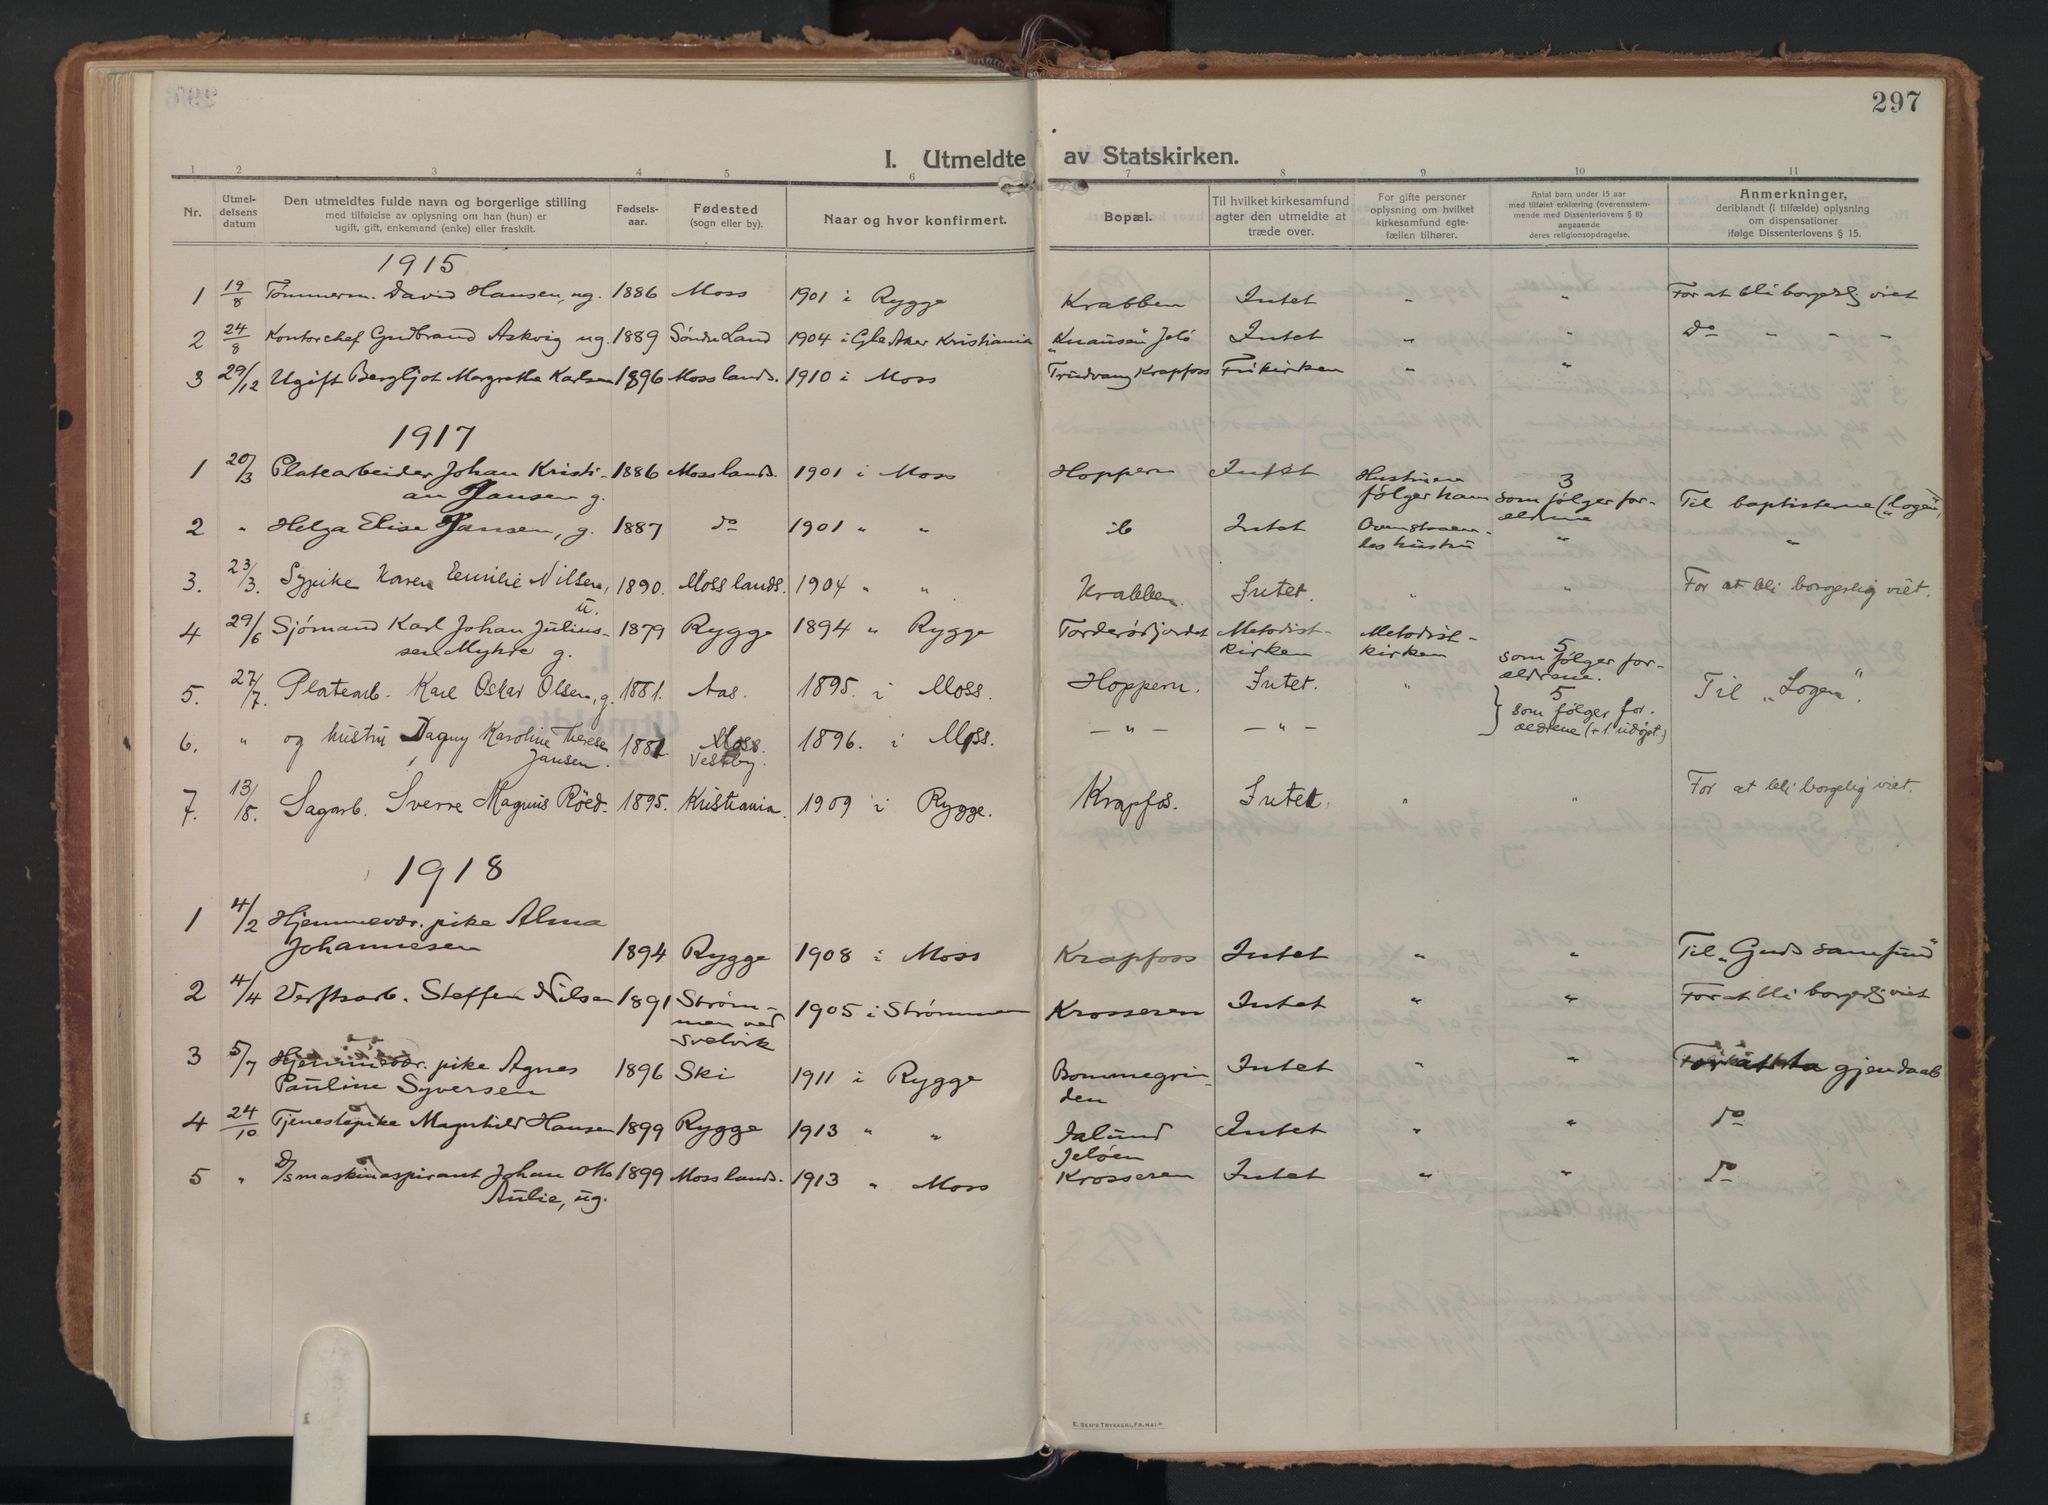 297
I. Utmeldte av Statskirken.
1 2 3 4 5 6 7 8 9 10 11
Nr. Utmel-delsens datum Den utmeldtes fulde navn og borgerlige stilling med tilføielse av oplysning om han (hun) er ugift, gift, enkemand (enke) eller fraskilt. Fødsels-aar. Fødested (sogn eller by). Naar og hvor konfirmert. Bopæl. Til hvilket kirkesamfund agter den utmeldte at træde over. For gifte personer oplysning om hvilket kirkesamfund egte-fællen tilhører. Antal barn under 15 aar med tilføiet erklæring (overensstem-mende med Dissenterlovens § 8) angaaende deres religionsopdragelse. Anmerkninger, deriblandt (i tilfælde) oplysning om dispensationer ifølge Dissenterlovens § 15.
1915
1 19/8 Tømmerm. David Hansen, ug. 1886 Moss 1901 i Rygge Krabben Intet " " For at bli borgerlig viet
2 24/8 Kontorchef Gudbrand Askvig ug. 1889 Søndre Land 1904 i Gle Aker Kristiania "Knausen" Jelø Intet " " do " - -
3 29/12 Ugift Bergljot Margrethe Karlsen 1896 Moss lands. 1910 i Moss Trudvang Krapfoss Frikirken " "
1917
1 20/3 Platearbeider Johan Kristi- 1886 Moss lands. 1901 i Moss Hoppern Intet Hustruen 3
an Jansen g. følger ham som følger for- Til baptisterne ("Logen")
ældrene
2 " Helga Elise Jansen, g. 1887 do 1901 " " ib Intet Ovenstaaen- " "
des hustru
3. 23/3. Sypike Karen Emilie Nilsen, 1890. Moss lands. 1904 " " Krabben. Intet. " " For at bli borgerlig viet.
u.
4 29/6 Sjømand Karl Johan Julius- 1879 Rygge 1894 " Rygge Torderødjordet Metodist- Metodist- 5
sen Myhre g. kirken kirken som følger for-
ældrene.
5. 27/7. Platearb. Karl Oskar Olsen, g. 1881. Aas. 1895. i Moss. Hoppern. Intet. " 5 Til "Logen".
som følger for-
6. " og hustru Dagny Karoline Therese 1881 Moss. 1896. i Moss. - " - - " - ældrene (+ 1 udøpt.)
Jansen. Vestby.
7. 13/8. Sagarb. Sverre Magnus Röed. 1895. Kristiania. 1909 i Rygge. Krapfos. Intet. " " For at bli borgelig viet.
1918
1 4/2 Hjemmevær. pike Alma
Johannesen 1894 Rygge 1908 i Moss Krapfoss Intet " " Til "Guds samfund"
2 4/4 Verftsarb. Steffen Nilsen 1891 Strøm- 1905 i Strømmen Krosseren Intet " " For at bli borgerlig viet
men ved
Svelvik
3 5/7 Hjemmevær. pike Agnes 1896 Ski 1911 i Rygge Bommegrin- Intet " " For at ta gjendaab
Pauline Syversen den
4 24/10 Tjenestepike Magnhild Hansen 1899 Rygge 1913 " " Jalund Intet " " do
Jeløen
5 " D/s maskinaspirant Johan Otto 1899 Moss lands. 1913 " Moss Krosseren Intet " " do
Aulie, ug.
E. SEM'S TRYKKERI, FR.HALD